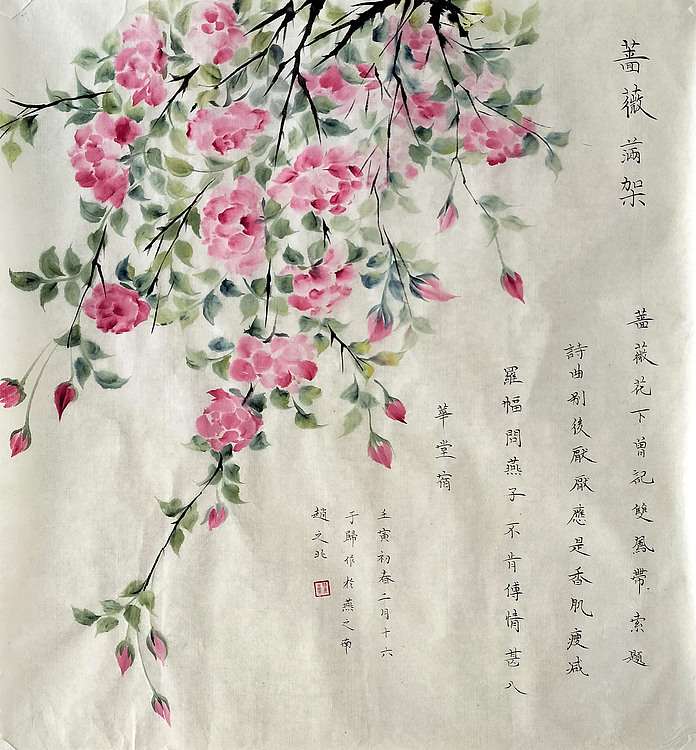 薔薇满架
薔薇花下曾記雙鳳帶索題
詩曲别後厭厭應是香肌瘦减
羅幅問燕子不肯傳情甚入
華堂宿
壬寅初春二月十六
于歸作於燕之南
趙之北